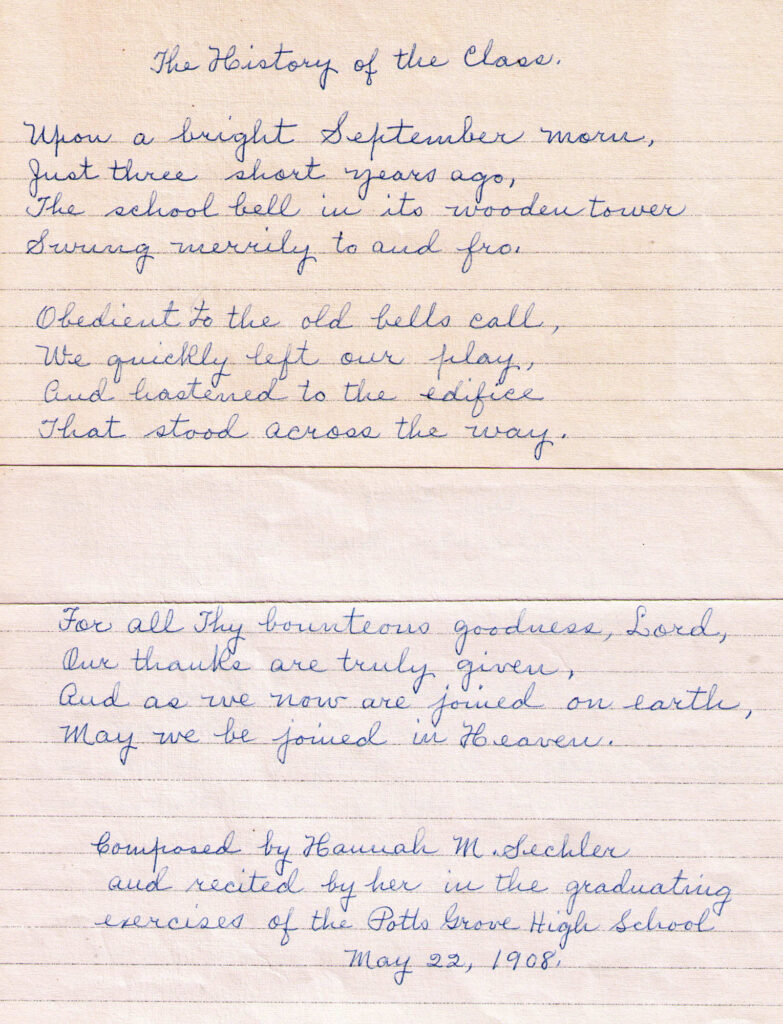 The History of the Class.
Upon a bright September morn,
Just three short years ago,
The school bell in its wooden tower
Swung merrily to and fro.
Obedient to the old bells call,
We quickly left our play,
And hastened to the edifice
That stood across the way.
For all Thy bounteous goodness, Lord,
Our thanks are truly given,
And as we now are joined on earth,
May we be joined in Heaven.
Composed by Hannah M. Sechler
and recited by her in the graduating
exercises of the Potts Grove High School
May 22, 1908.